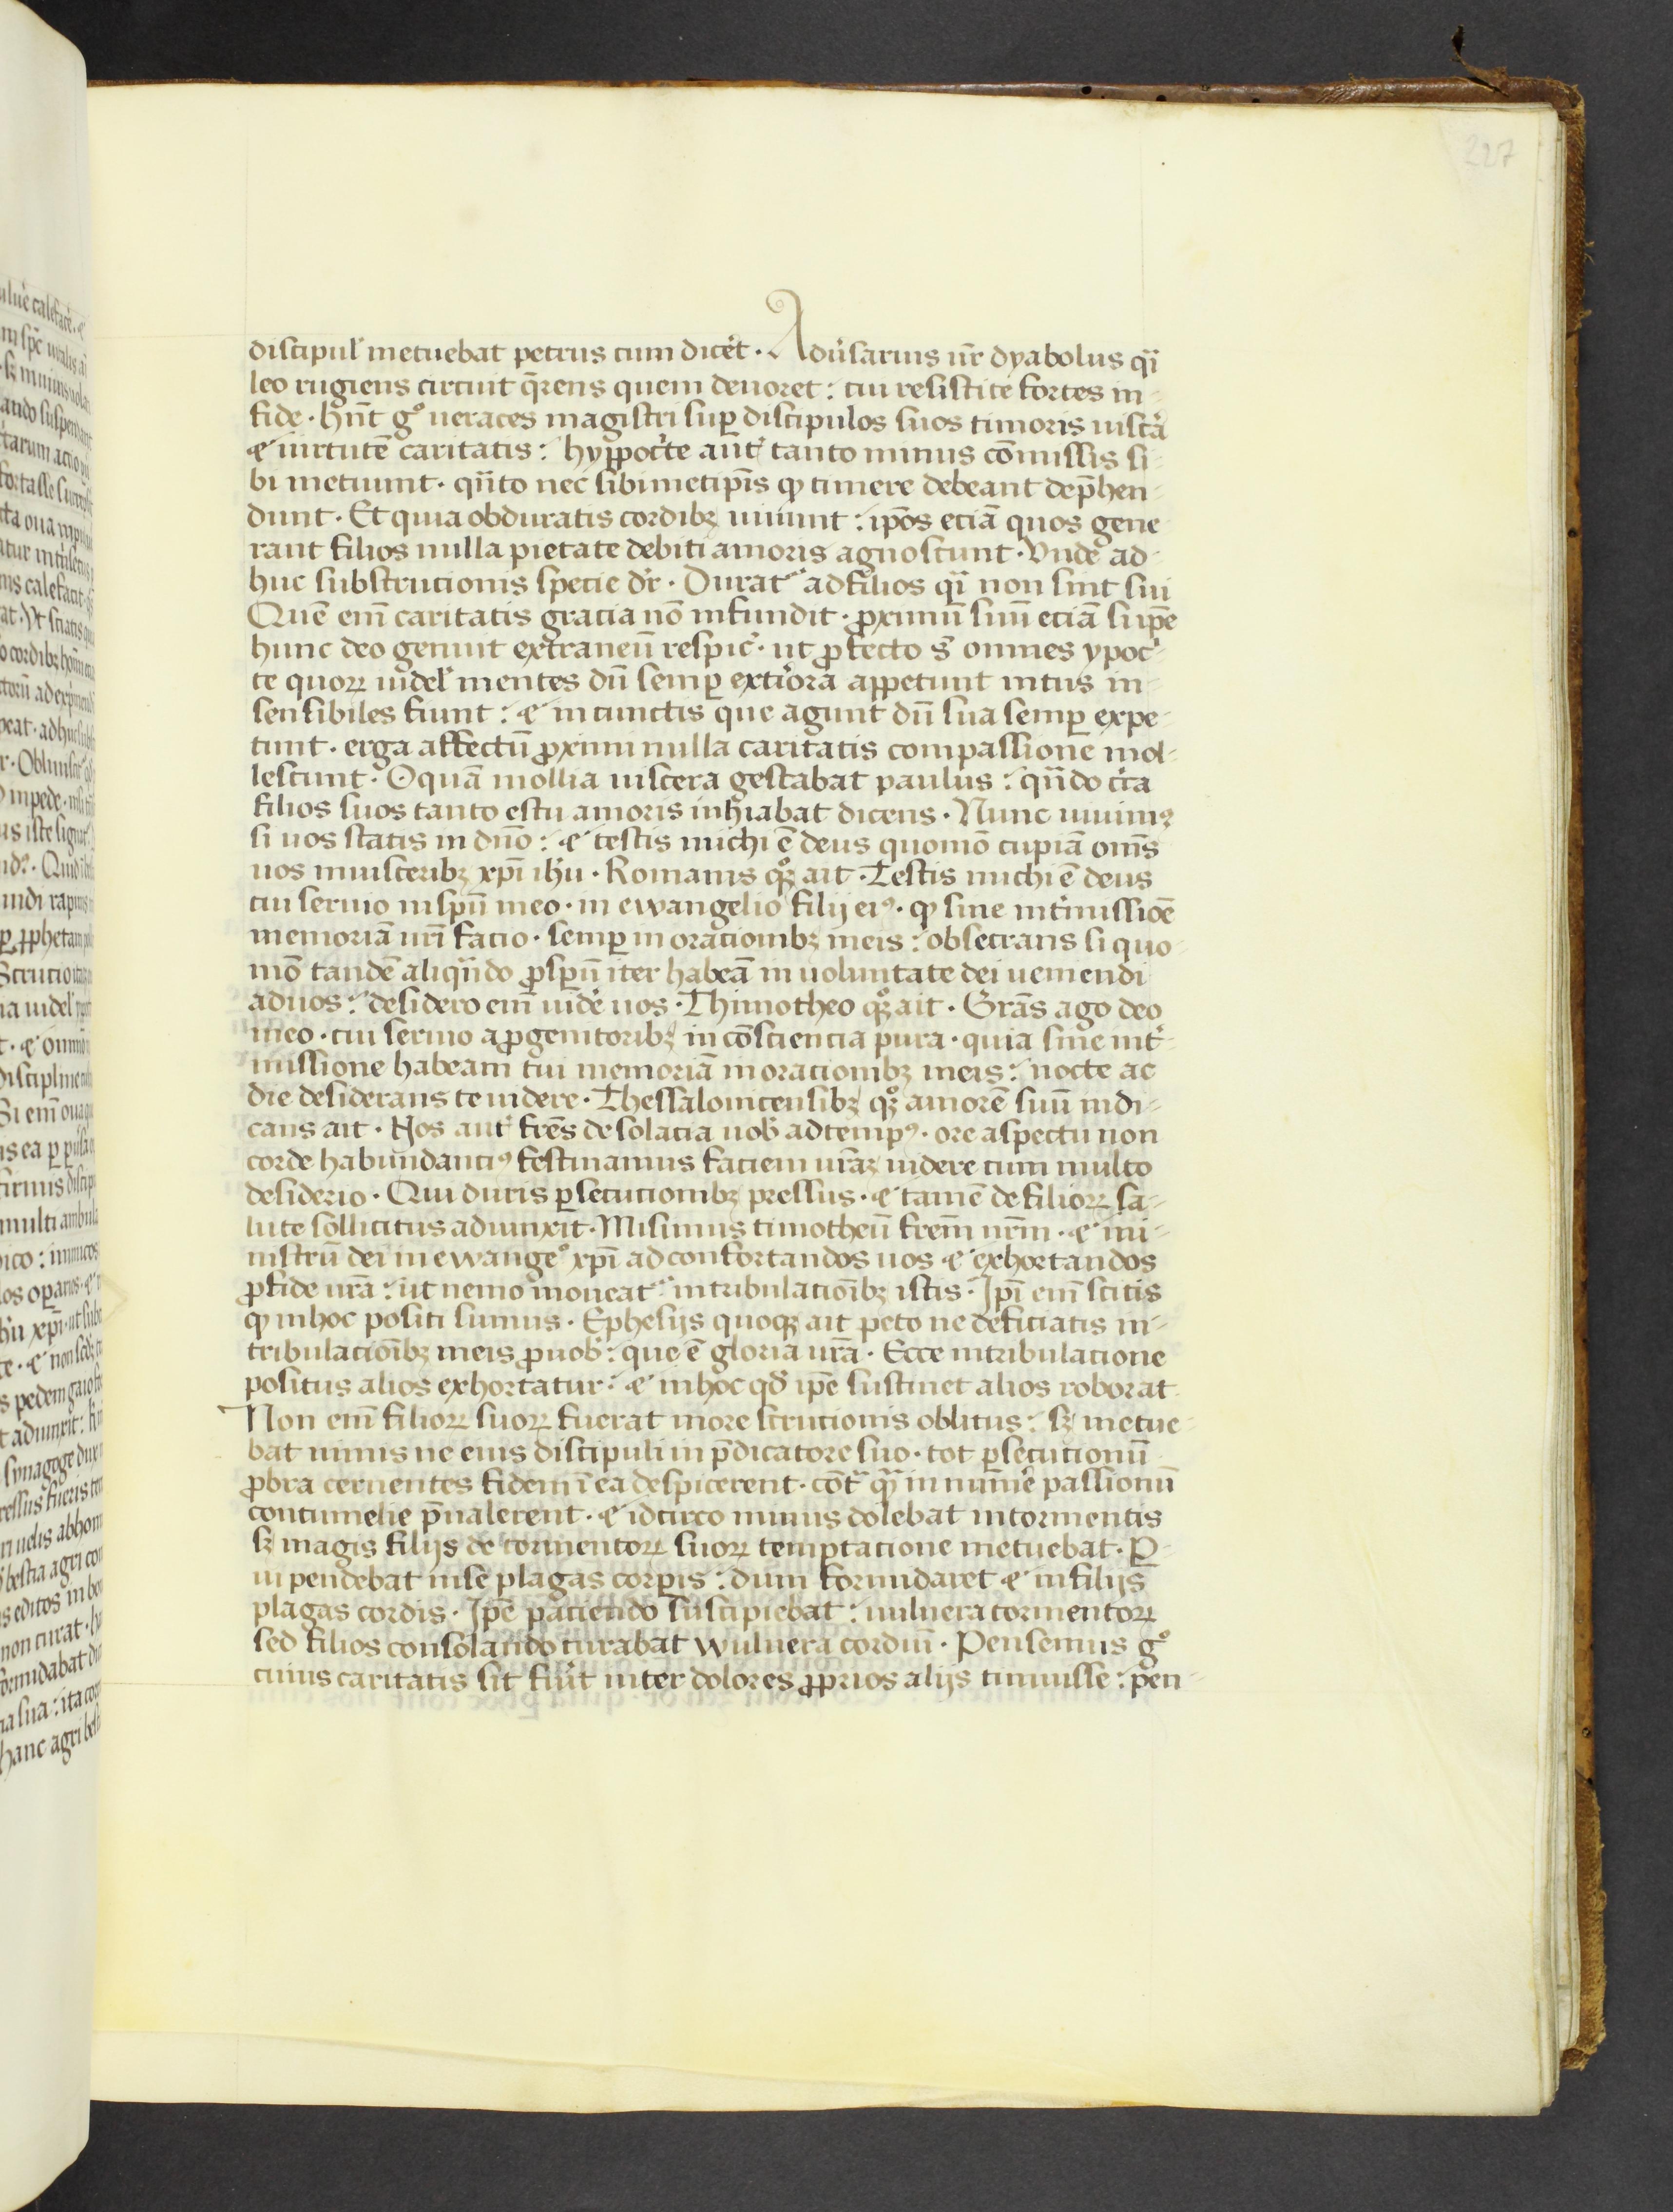 227
discipul' metuebat petrus cum dicet̾. Adu̾sarius nr̄ dyabolus qͣi
leo rugiens circuit q̄rens quem deuoret: cui resistite fortes in-
fide. Hn̄t gͦ ueraces magistri suꝑ discipulos suos timoris uiscͣa
& uirtutē caritatis: hyppoc̾te aut̾ tanto minus cōmissis si-
bi metiunt. qn̄to nec sibimetip̄is ꝙ timere debeant dep̄hen-
dunt. Et quia obduratis cordibꝫ uiuunt: ip̄os eciā quos gene-
rant filios nulla pietate debiti amoris agnoscunt. Vnde ad-
huc substrucionis specie dr̄. Durat᷑ ad filios qͣi non sint sui
Quē em̄ caritatis gracia nō infundit. ꝓximū suū eciā si ip̄e
hunc deo genuit extraneū respic̾. ut ꝓfecto s̄ omnes ypoc̾-
te quoꝝ uidel' mentes dū semꝑ exti̾ora appetunt intus in-
sensibiles fiunt: & in cunctis que agunt dū sua semꝑ expe-
tunt. erga affectū ꝓximi nulla caritatis compassione mol-
lescunt. O quā mollia uiscera gestabat paulus: qn̄do cͥca
filios suos tanto estu amoris inhiabat dicens. Nunc uiuimꝰ
si uos statis in dn̄o: & testis michi ē deus quomō cupiā om̄s
uos in uisceribꝫ xp̄i ih̄u. Romanis qͦꝫ ait. Testis michi ē deus
cui seruio in spū meo. in ewangelio filij eiꝰ. ꝙ sine int̾missiōe
memoriā ur̄i facio. semꝑ in oracionibꝫ meis: obsecrans si quo-
mō tandē aliqn̄do ꝓspū iter habeā in uoluntate dei ueniendi
ad uos: desidero em̄ uid̾e uos. Thimotheo qͦꝫ ait. Grās ago deo
meo. cui seruio a ꝓgenitoribꝫ in cōsciencia pura. quia sine int̾-
missione habeam tui memoriā in oracionibꝫ meis: nocte ac
die desiderans te uidere. Thessalonicensibꝫ qͦꝫ amorē suū indi-
cans ait. Nos aut̾ fr̄es desolacia uob̾ ad tempꝰ. ore aspectu non
corde habundanciꝰ festinamus faciem ur̄aꝫ uidere cum multo
desiderio. Qui duris ꝑsecucionibꝫ pressus. & tamē de filioꝝ sa-
lute sollicitus adiunxit. Misimus timotheū frēm nr̄m. & mi-
nistrū dei in ewangeͦ xp̄i ad confortandos uos & exhortandos
ꝓ fide ur̄a: ut nemo moueat᷑ in tribulaciōibꝫ istis. Ip̄i em̄ scitis
ꝙ in hoc positi sumus. Ephesijs quoqꝫ ait peto ne deficiatis in-
tribulaciōibꝫ meis ꝓ uob̾: que ē gloria ur̄a. Ecce in tribulacione
positus alios exhortatur: & in hoc qd̾ ip̄e sustinet alios roborat
Non em̄ filioꝝ suoꝝ fuerat more strucionis oblitus: sꝫ metue-
bat nimis ne eius discipuli in p̄dicatore suo. tot ꝑsecucionū
ꝓbra cernentes fidem ī ea despicerent. cōtͣ qͣ in num̾e passionū
contumelie p̄ualerent. & idcirco minus dolebat in tormentis
sꝫ magis filijs de tormentoꝝ suoꝝ temptacione metuebat. P-
ui pendebat in se plagas corꝑis: dum formidaret & in filijs
plagas cordis. Ip̄e paciendo suscipiebat: uulnera tormentoꝝ
sed filios consolando curabat wulnera cordiū. Pensemus gͦ
cuius caritatis sit fiu̾t inter dolores ꝓprios alijs timuisse: pen-